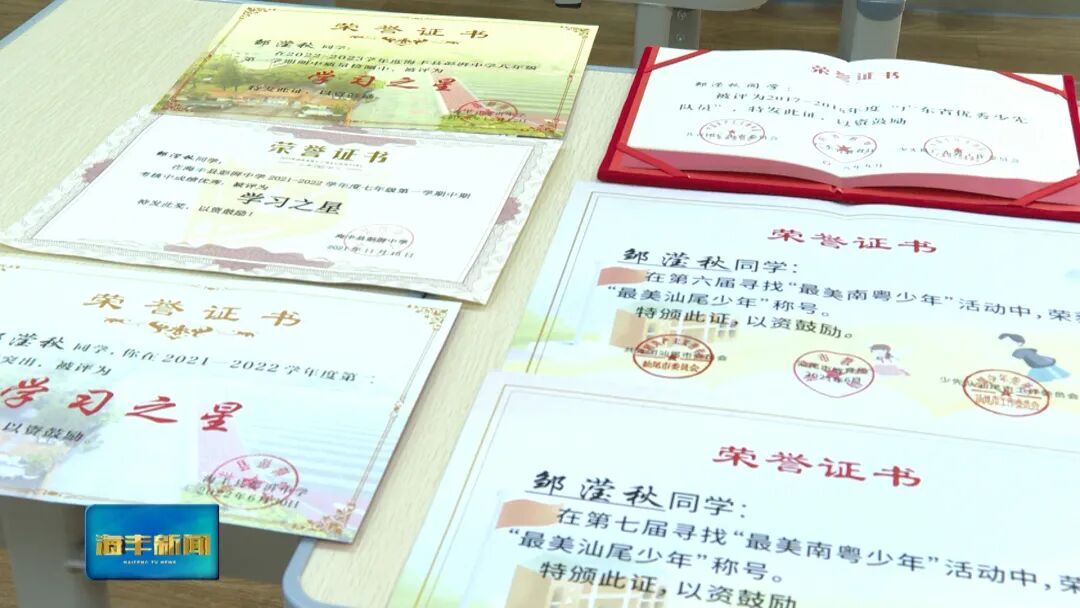 荣誉证书
邹滢秋同学:
在2022-2023学年度海丰县彭湃中学八年级
第一学期期中质量检测中,被评为
学习之星
特发此证,以资鼓励。
荣誉证书
邹滢秋同学:
在海丰县彭湃中学2021-2022学年度七年级第一学期中期
考核中成绩优秀,被评为
学习之星
特发此奖,以资鼓励!
海丰县彭湃中学
2021年11月
荣誉证书
邹滢秋同学,你在2021—2022学年度第二
突出,被评为
学习之星
以资鼓励。
2022年6月
荣誉证书
邹滢秋同学:
被评为2017-2018年度“广东省优秀少先
队员”,特发此证,以资鼓励
荣誉证书
邹滢秋同学:
在第六届寻找“最美南粤少年”活动中,荣
“最美汕尾少年”称号。
特颁此证,以资鼓励。
汕尾市委员会
荣誉证书
邹滢秋同学:
在第七届寻找“最美南粤少年”活动中,荣
“最美汕尾少年”称号。
特颁此证,以资鼓励。
海丰新闻
HAIFENG TV NEWS